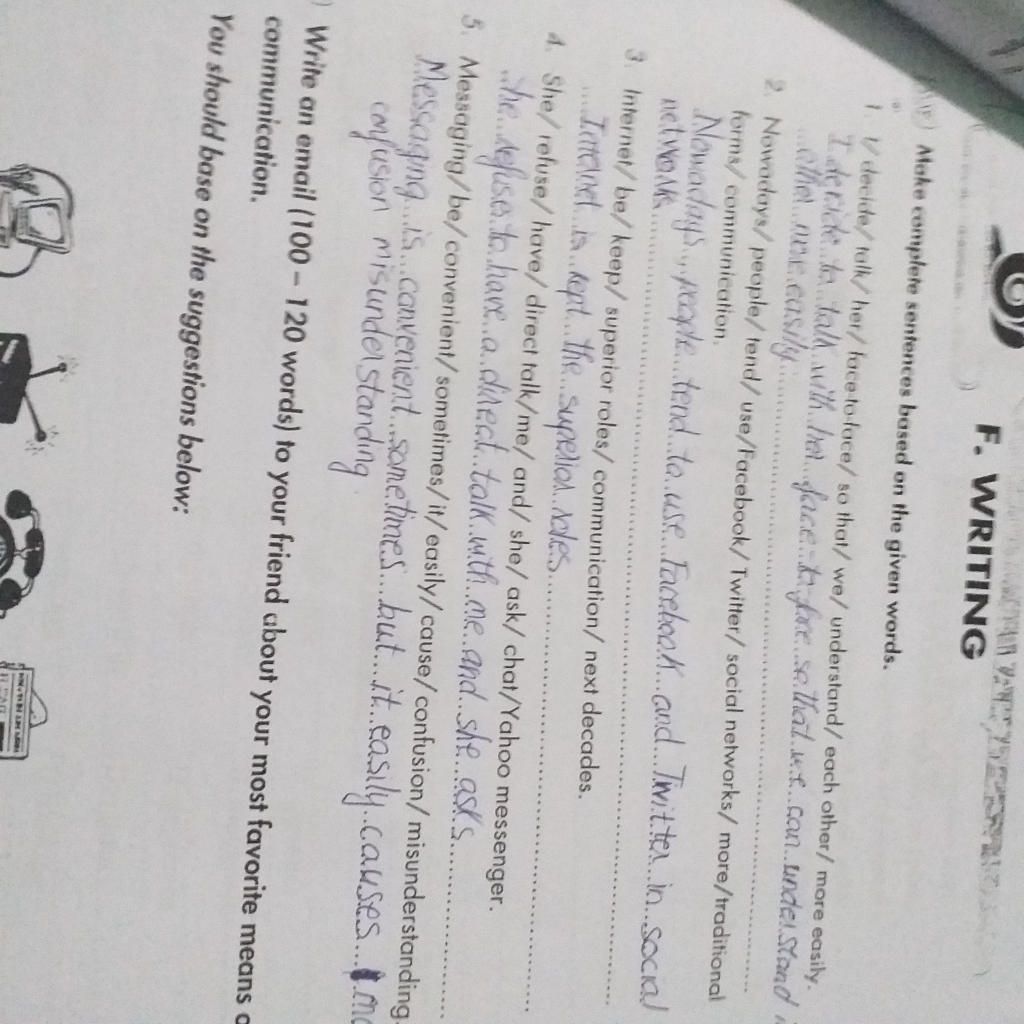 F. WRITING
Make complete sentences based on the given words.
1. I/ decide/ talk/ her/ face-to-face/ so that/ we/ understand/ each other/ more easily.
I decide to talk with her face-to-face so that we can understand
other more easily
2. Nowadays/ people/ tend/ use/Facebook/ Twitter/ social networks/ more/traditional
forms/ communication.
Nowadays, people tend to use Facebook and Twitter in social
network
3. Internet/ be/ keep/ superior roles/ communication/ next decades.
Internet is kept the superior roles
4. She/ refuse/ have/ direct talk/me/ and/ she/ ask/ chat/Yahoo messenger.
She refuses to have a direct talk with me and she asks
5. Messaging/ be/ convenient/ sometimes/ it/ easily/ cause/ confusion/ misunderstanding.
Messaging is convenient sometimes but it easily causes
confusion misunderstanding.
) Write an email (100 – 120 words) to your friend about your most favorite means
communication.
You should base on the suggestions below: